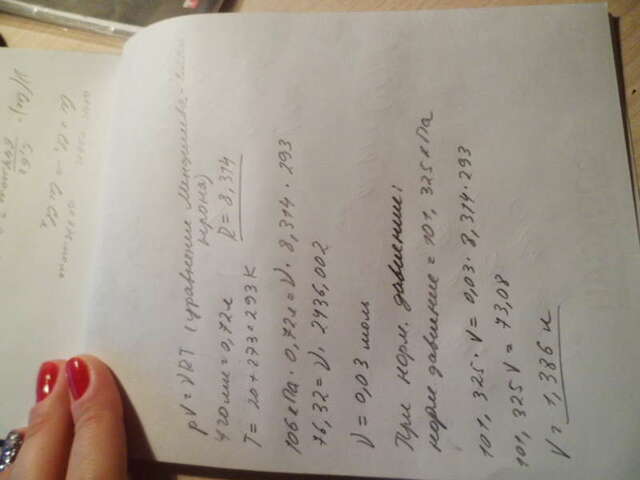 pV = νRT (уравнение Менделеева-
нерона)
R = 8,314
720 мл = 0,72 л
T = 20 + 273 = 293 К
106 кПа · 0,72 л = ν · 8,314 · 293
76,32 = ν · 2436,002
ν = 0,03 моль
При норм. давлении:
норм давление = 101, 325 кПа
101, 325 · V = 0,03 · 8,314 · 293
101, 325 V = 73,08
V = 1,386 л